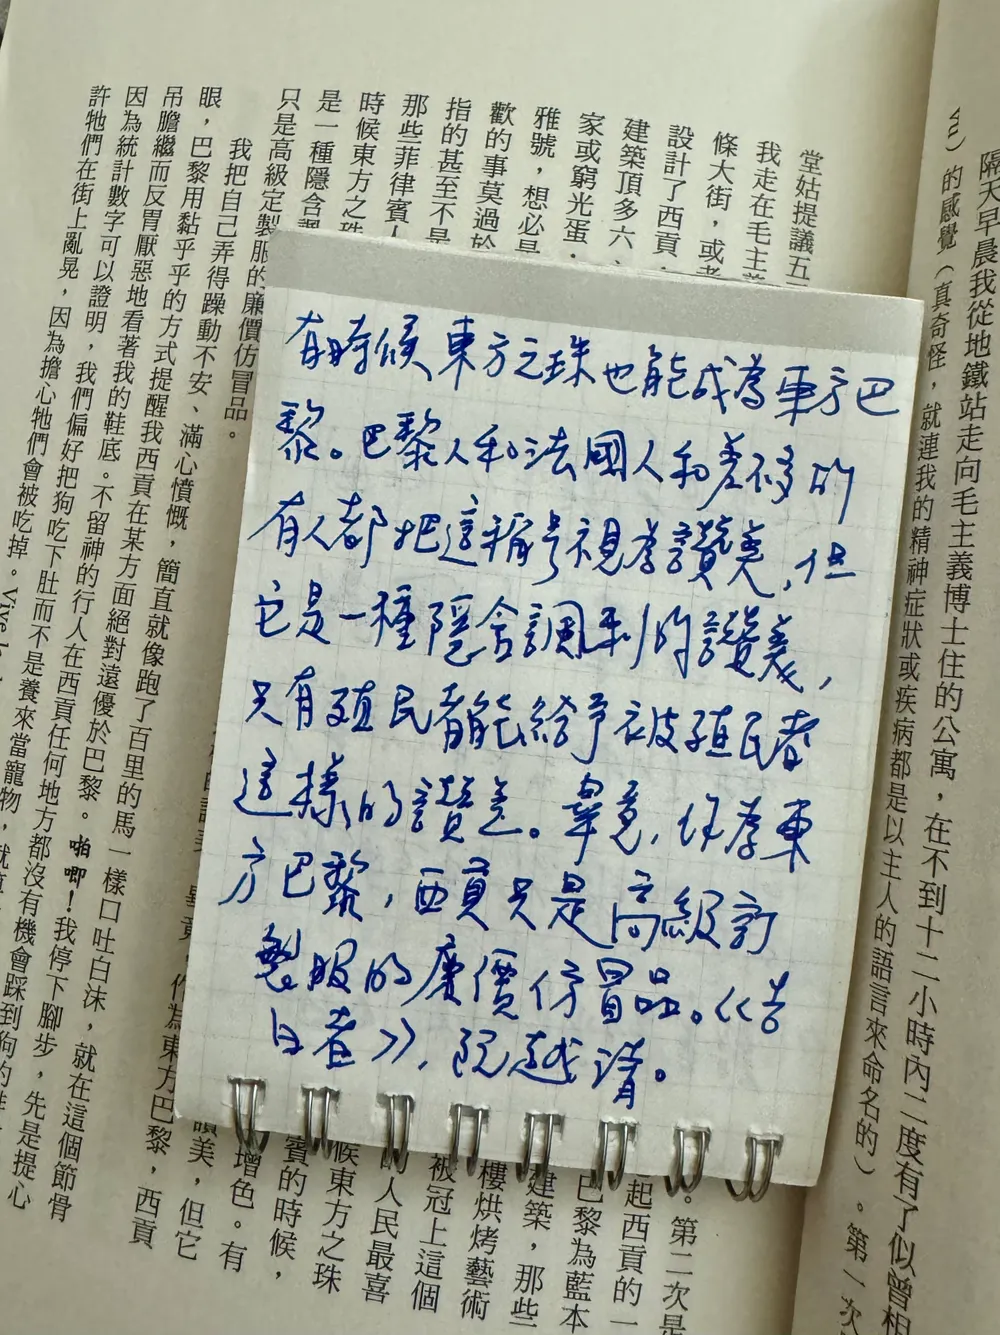 有時候東方之珠也能成為東方巴
黎。巴黎人和法國人和差不多的
有人都把這稱號視為讚美,但
它是一種隱含諷刺的讚美,
只有殖民者能給予被殖民者
這樣的讚美。畢竟,作為東
方巴黎,西貢只是高級訂
製服的廉價仿冒品。《告
白者》,阮越清。
隔天早晨我從地鐵站走向毛主義博士住的公寓,在不到十二小時內二度有了似曾相
vu)的感覺(真奇怪,就連我的精神症狀或疾病都是以主人的語言來命名的)。第一次
堂姑提議五 。第二次是
我走在毛主義 起西貢的一
條大街,或者 巴黎為藍本
設計了西貢, 建築,那些
建築頂多六、 樓烘烤藝術
家或窮光蛋, 被冠上這個
雅號,想必是 人民最喜
歡的事莫過於 候東方之珠
指的甚至不是 賓的時候,
那些菲律賓人 增色。有
時候東方之珠 讚美,但它
是一種隱含諷 畢竟,作為東方巴黎,西貢
只是高級定製服的廉價仿冒品。
我把自己弄得躁動不安、滿心憤慨,簡直就像跑了百里的馬一樣口吐白沫,就在這個節骨
眼,巴黎用黏乎乎的方式提醒我西貢在某方面絕對遠優於巴黎。啪唧!我停下腳步,先是提心
吊膽繼而反胃厭惡地看著我的鞋底。不留神的行人在西貢任何地方都沒有機會踩到狗的
因為統計數字可以證明,我們偏好把狗吃下肚而不是養來當寵物,
許牠們在街上亂晃,因為擔心牠們會被吃掉。Vive